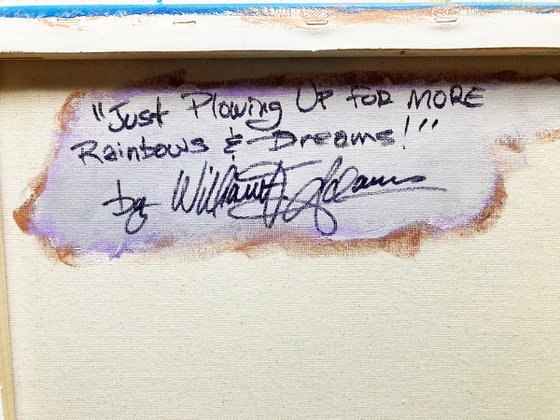 "Just Plowing Up FOR MORE
Rainbows & Dreams!"
by William F. Adams